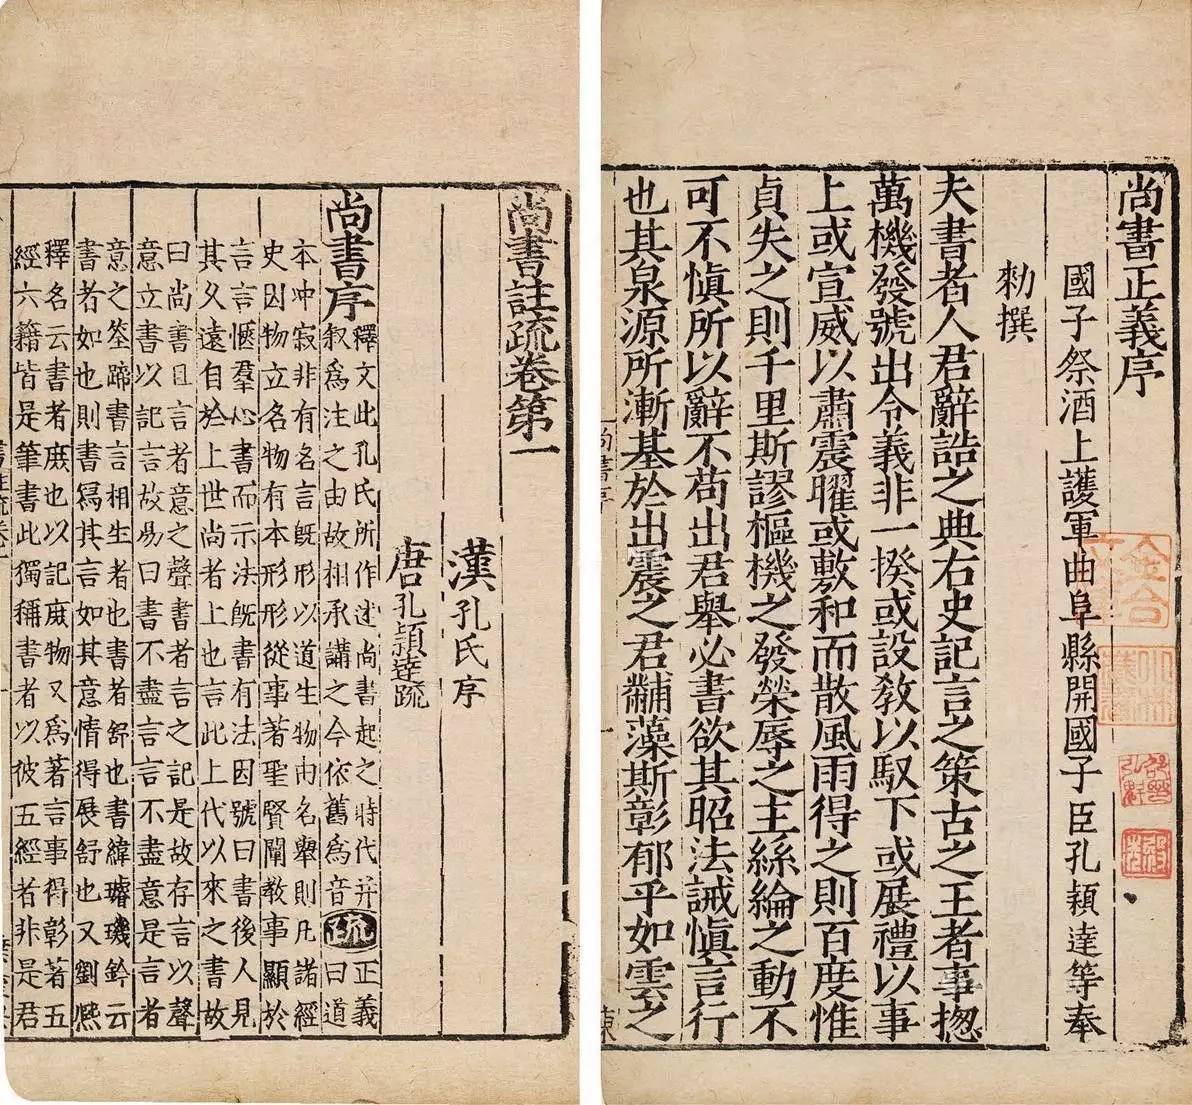 尚書正義序
國子祭酒上護軍曲阜縣開國子臣孔穎達等奉
勑撰
夫書者人君辭誥之典右史記言之策古之王者事揔
萬機發號出令義非一揆或設敎以馭下或展禮以事
上或宣威以肅震曜或敷和而散風雨得之則百度惟
貞失之則千里斯謬樞機之發榮辱之主絲綸之動不
可不愼所以辭不苟出君舉必書欲其昭法誡愼言行
也其泉源所漸基於出震之君黼藻斯彰郁乎如雲之
尚書註疏卷第一
漢孔氏序
唐孔穎達疏
尚書序釋文此孔氏所作述尚書起之時代并
叙爲注之由故相承講之今依舊爲音疏正義曰道
本冲寂非有名言旣形以道生物由名舉則凡諸經
史因物立名物有本形形從事著聖賢闡敎事顯於
言言愜羣心書而示法旣書有法因號曰書後人見
其久遠自於上世尚者上也言此上代以來之書故
曰尚書且言者意之聲書者言之記是故存言以聲
意立書以記言故易曰書不盡言言不盡意是言者
意之筌蹄書言相生者也書者舒也書緯璿璣鈐云
書者如也則書寫其言如其意情得展舒也又劉熙
釋名云書者庶也以記庶物又爲著言事得彰著五
經六籍皆是筆書此獨稱書者以彼五經者非是君